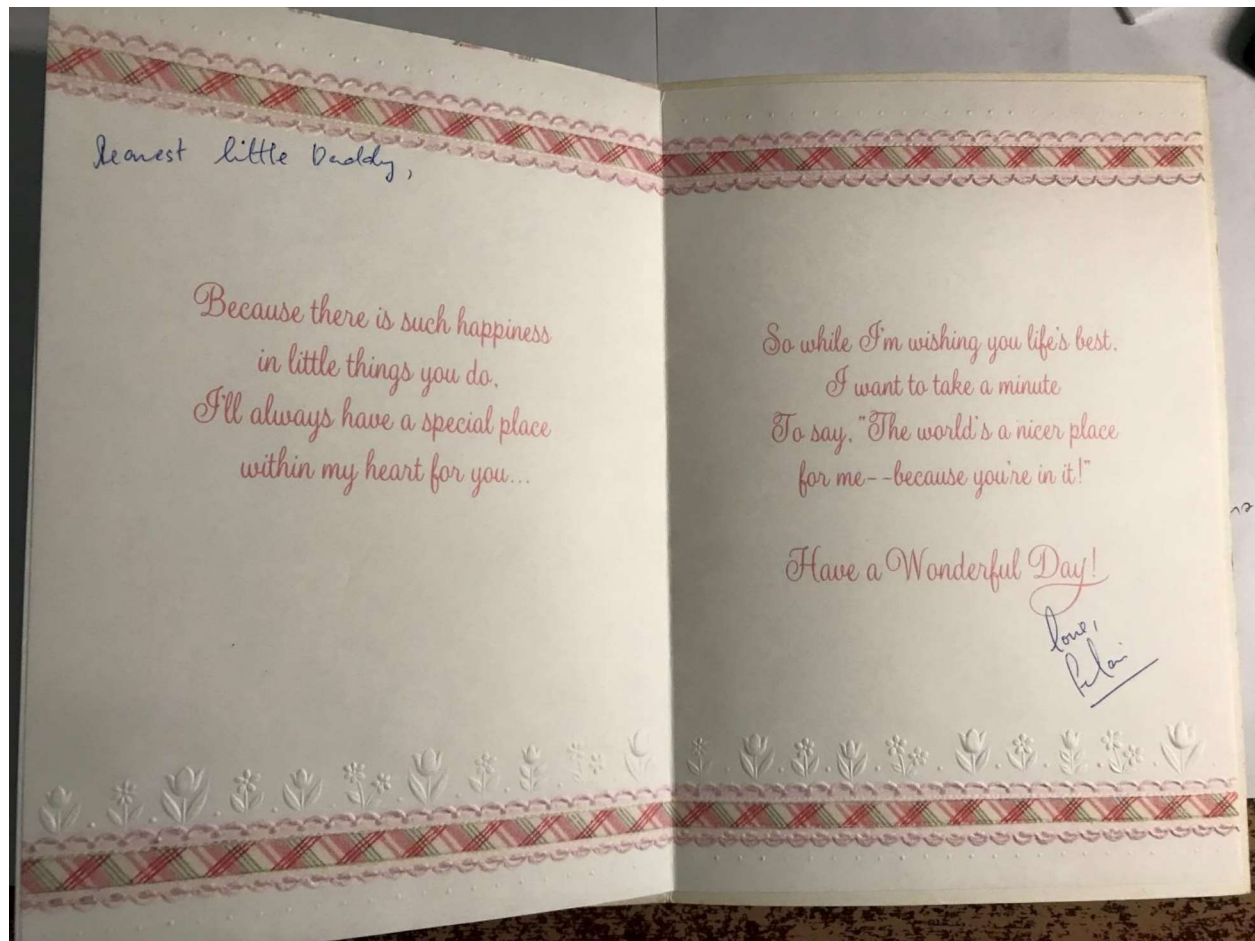 Dearest little Daddy,
Because there is such happiness
in little things you do,
I'll always have a special place
within my heart for you...
So while I'm wishing you life's best,
I want to take a minute
To say, "The world's a nicer place
for me--because you're in it!"
Have a Wonderful Day!
love,